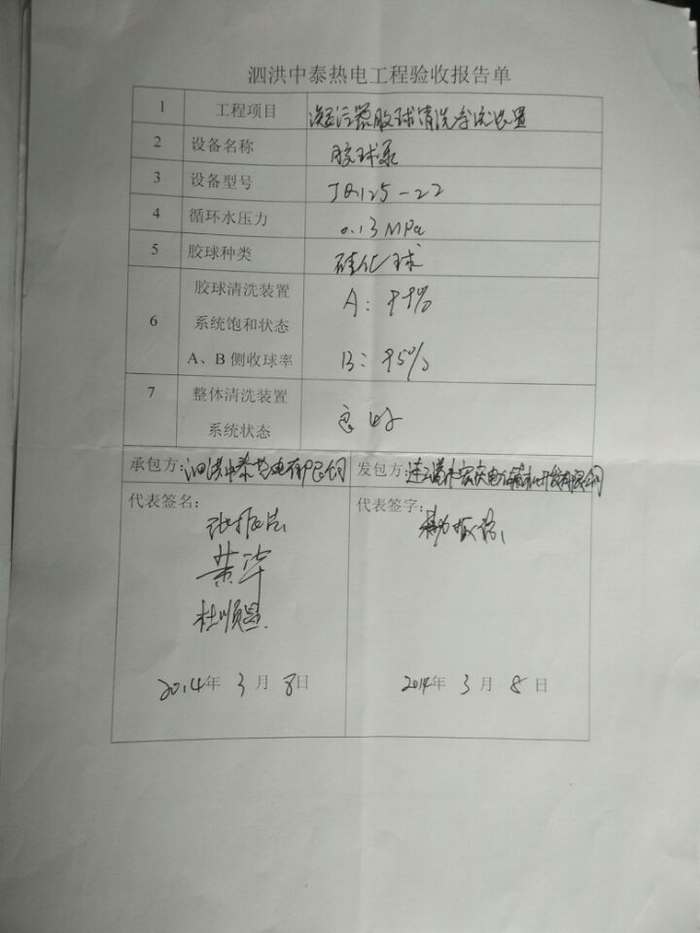 泗洪中泰热电工程验收报告单
1 工程项目 凝汽器胶球清洗系统装置
2 设备名称 胶球泵
3 设备型号 JQ125-22
4 循环水压力 0.13 MPa
5 胶球种类 硅化球
胶球清洗装置 A: 99%
6 系统饱和状态
A、B侧收球率 B: 95%
7 整体清洗装置 良好
系统状态
承包方:泗洪中泰热电有限公司 发包方:连云港市宏庆电力辅机开发有限公司
代表签名: 代表签字:
黄华
杜顺
2014年 3月 8日 2014年 3月 8日